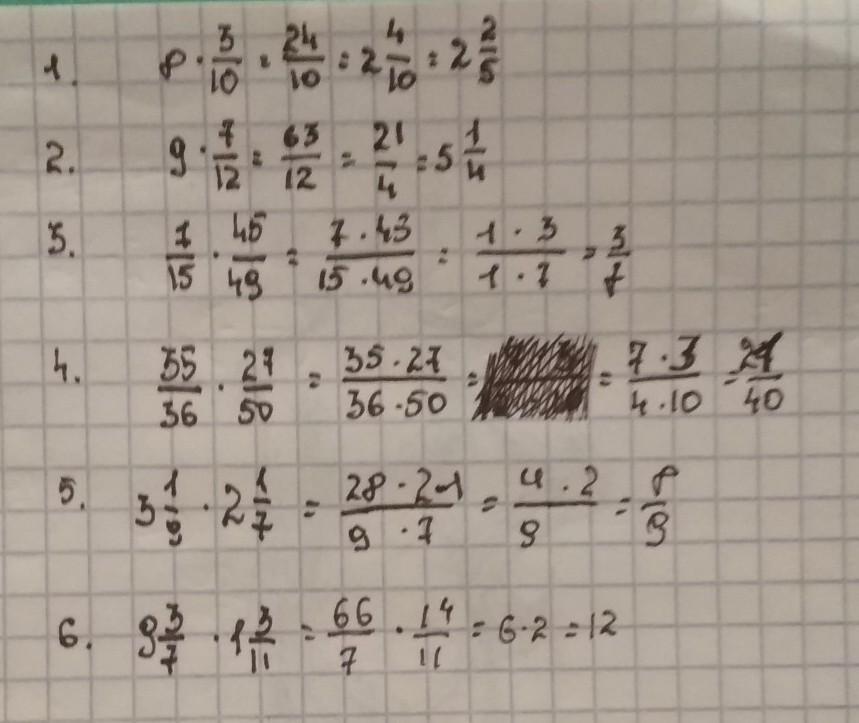 1. 8 · 3/10 = 24/10 = 2 4/10 = 2 2/5
2. 9 · 7/12 = 63/12 = 21/4 = 5 1/4
3. 7/15 · 45/49 = 7 · 43/15 · 49 = 1 · 3/1 · 7 = 3/7
4. 35/36 · 27/50 = 35 · 27/36 · 50 = = 7 · 3/4 · 10 = 21/40
5. 3 1/9 · 2 1/7 = 28 · 21/9 · 7 = 4 · 2/9 = 8/9
6. 9 3/7 · 1 3/11 = 66/7 · 14/11 = 6 · 2 = 12